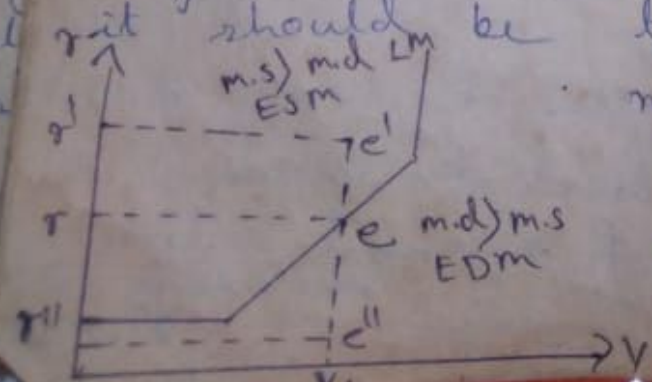 r it should be
m.s > m.d LM
ESM
r' e'
r e m.d > m.s
EDM
r'' e''
Y